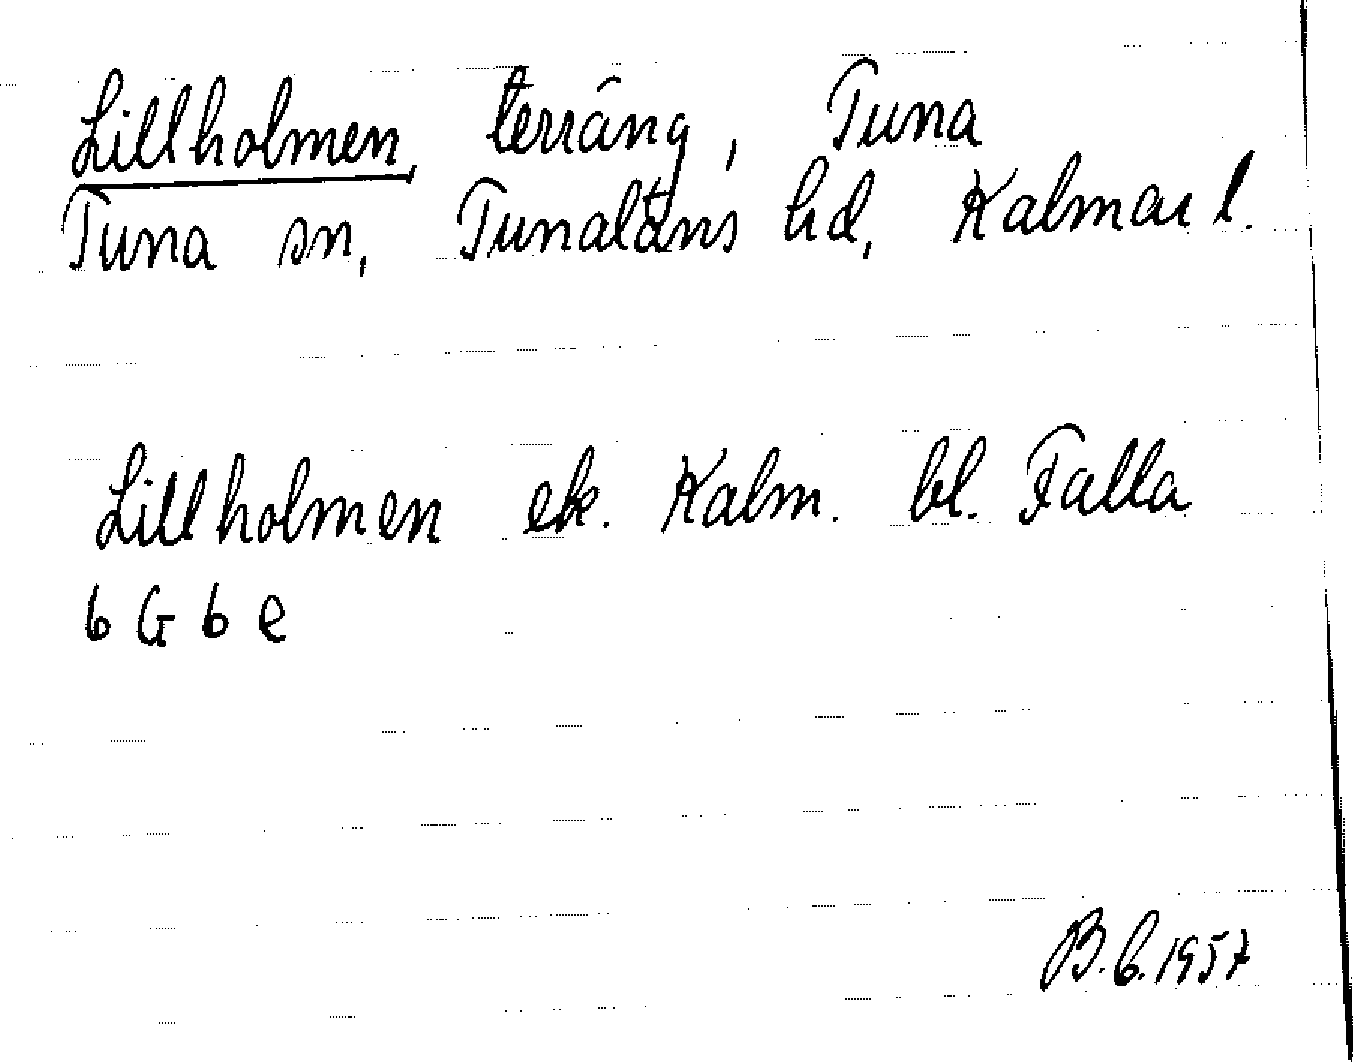 Lillholmen, terräng, Tuna
Tuna sn, Tunaläns hd, Kalmar l.
Lillholmen ek. Kalm. bl. Falla
6 G 6 e
B.G. 1957